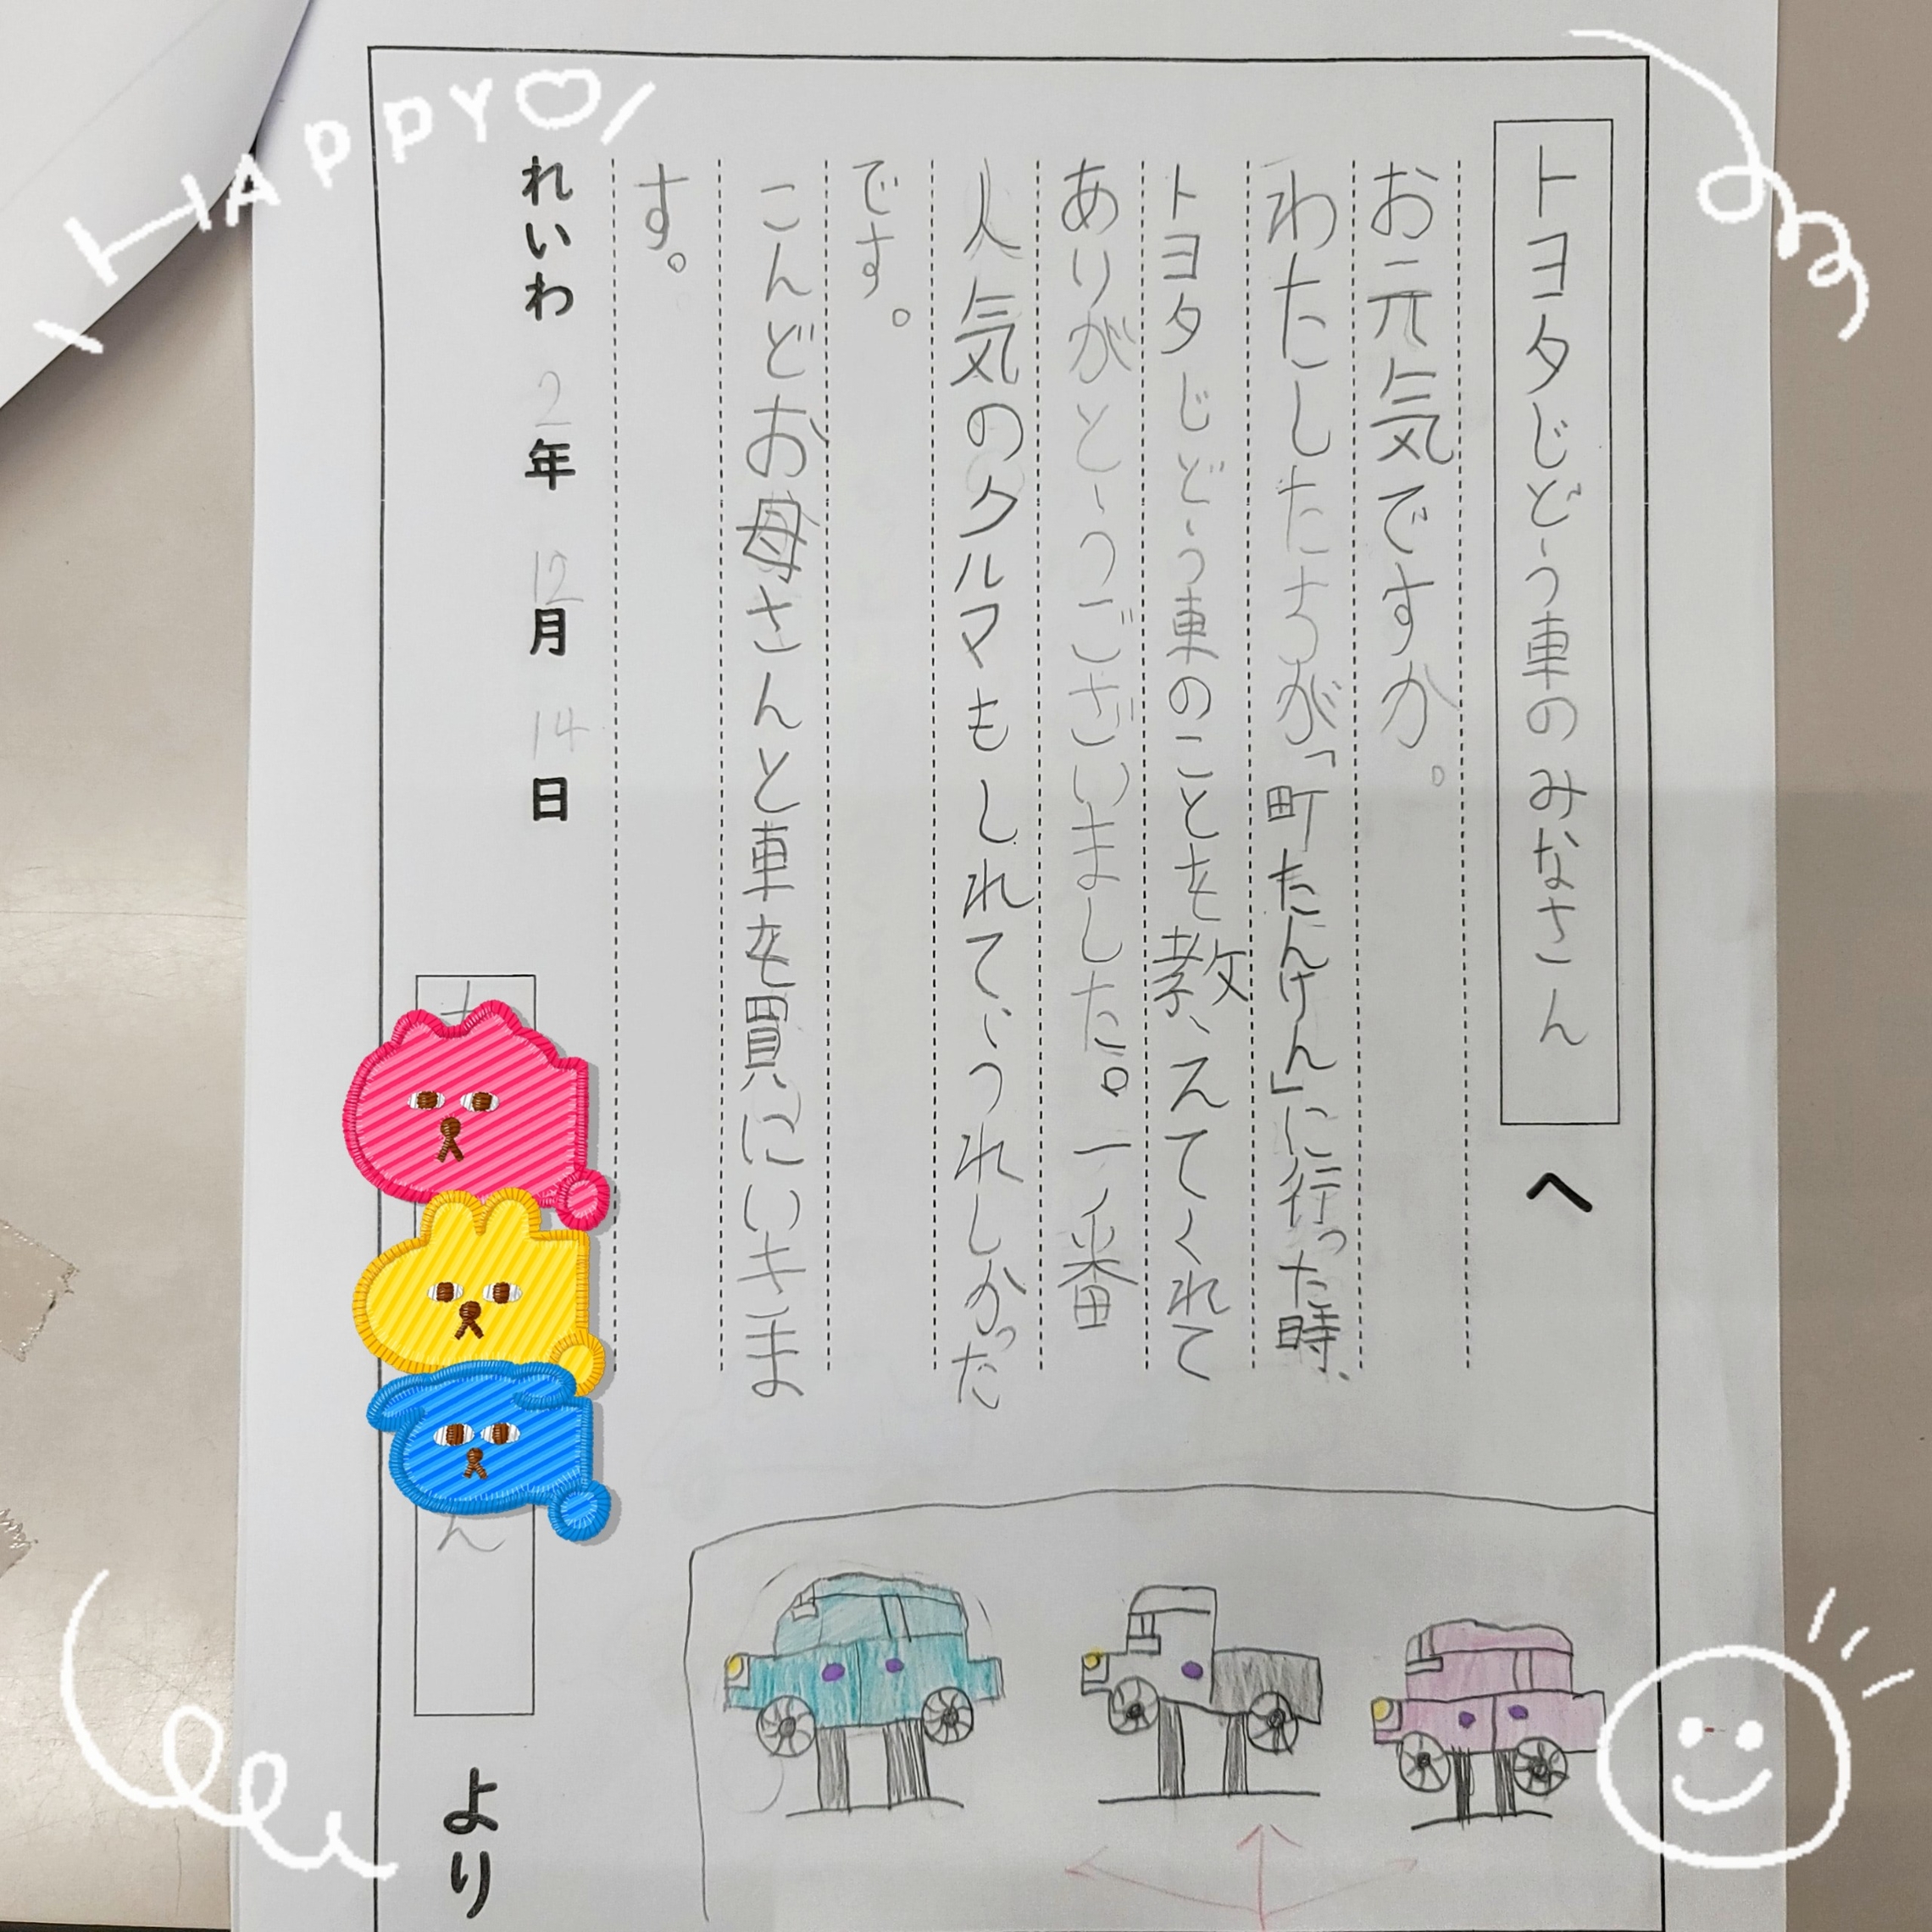 トヨタじどう車のみなさん へ
お元気ですか。
わたしたちが「町たんけん」に行った時、
トヨタじどう車のことを教えてくれて
ありがとうございました。一番
人気のクルマもしれて、うれしかった
です。
こんどお母さんと車を買にいきま
す。
れいわ 2年 12月 14日
ん より
HAPPY